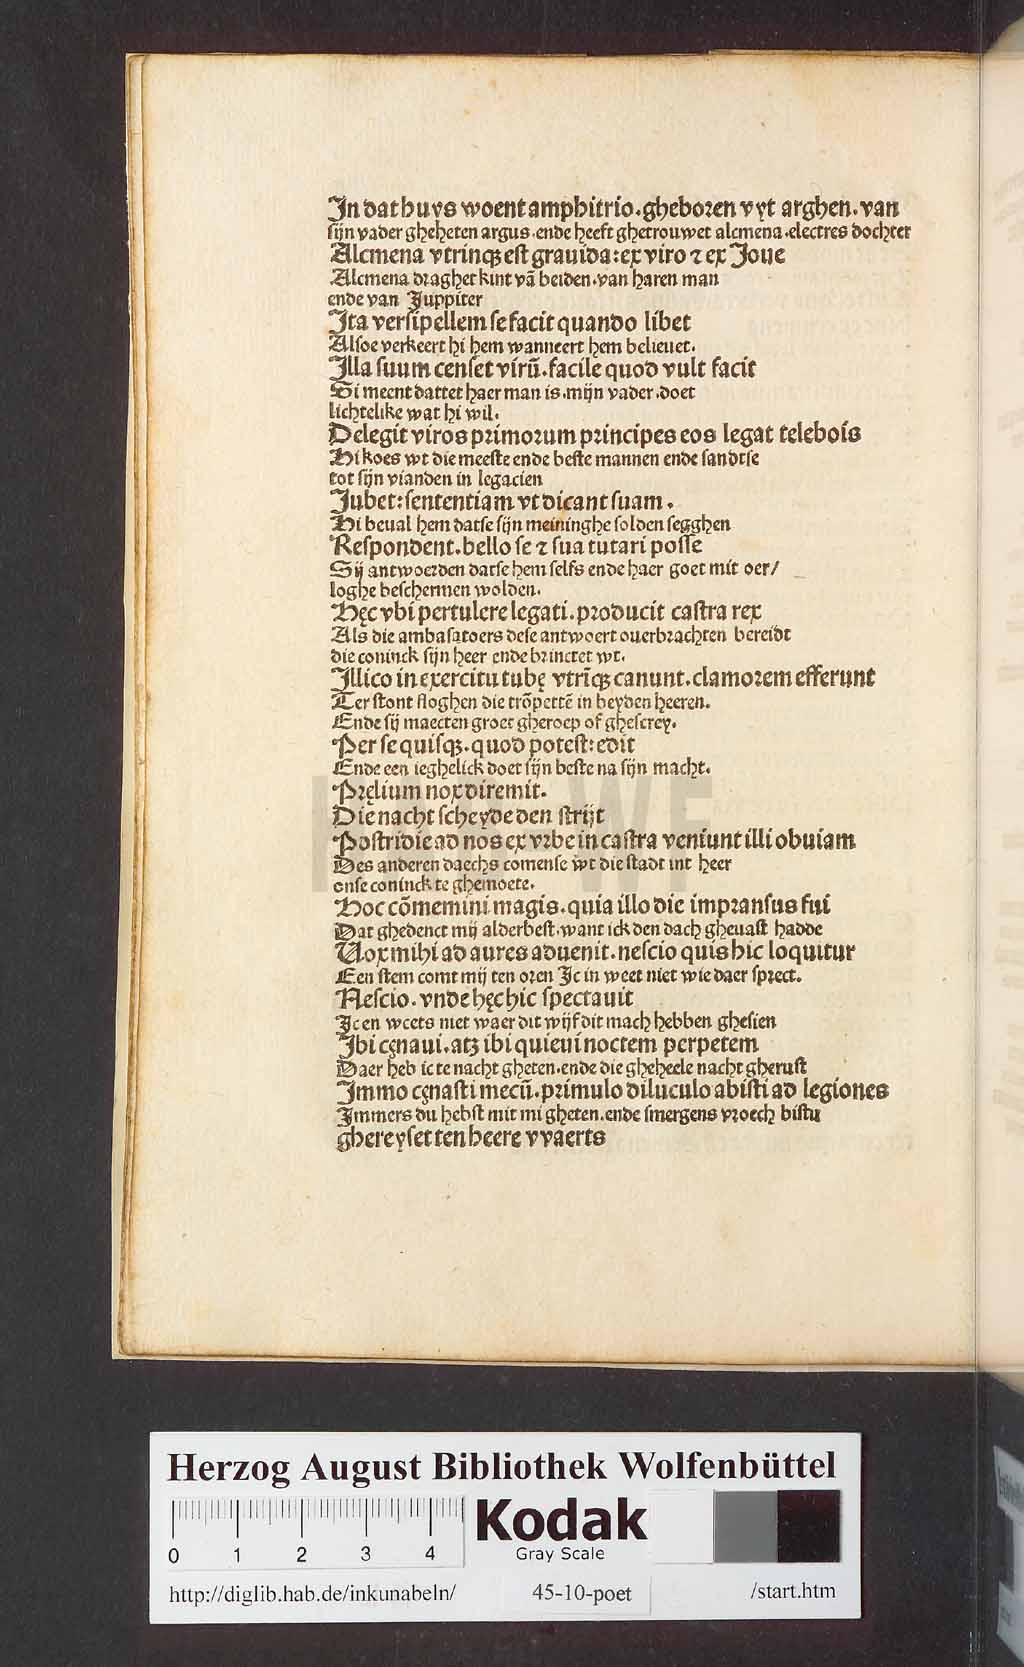 In dat huys woent amphitrio.gheboren vyt arghen.van
sijn vader gheheten argus.ende heeft ghetrouwet alcmena.electres dochter
Alcmena vtrinqꝫ est grauida:ex viro ⁊ ex Joue
Alcmena draghet kint vā beiden.van haren man
ende van Juppiter
Ita versipellem se facit quando libet
Alsoe verkeert hi hem wanneert hem belieuet.
Illa suum censet virū.facile quod vult facit
Si meent dattet haer man is.mijn vader.doet
lichtelike wat hi wil.
Delegit viros primorum principes eos legat telebois
Hi koes wt die meeste ende beste mannen ende sandtse
tot sijn vianden in legacien
Jubet:sententiam vt dicant suam.
Hi beual hem datse sijn meininghe solden segghen
Respondent.bello se ⁊ sua tutari posse
Sij antwoerden datse hem selfs ende haer goet mit oer/
loghe beschermen wolden.
Hęc vbi pertulere legati.producit castra rex
Als die ambasatoers dese antwoert ouerbrachten bereidt
die coninck sijn heer ende brinctet wt.
Illico in exercitu tubę vtrīqꝫ canunt.clamorem efferunt
Ter stont floghen die trōpettē in beyden heeren.
Ende sij maecten groet gheroep of ghescrey.
Per se quisqꝫ.quod potest:edit
Ende een ieghelick doet sijn beste na sijn macht.
Pręlium nox diremit.
Die nacht scheyde den strijt
Postridie ad nos ex vrbe in castra veniunt illi obuiam
Des anderen daechs comense wt die stadt int heer
onse coninck te ghemoete.
Hoc cōmemini magis.quia illo die impransus fui
Dat ghedenct mij alderbest.want ick den dach gheuast hadde
Uox mihi ad aures aduenit.nescio quis hic loquitur
Een stem comt mij ten oren Ic in weet niet wie daer sprect.
Nescio.vnde hęc hic spectauit
Ic en weets niet waer dit wijf dit mach hebben ghesien
Ibi cęnaui.atꝫ ibi quieui noctem perpetem
Daer heb ic te nacht gheten.ende die gheheele nacht gherust
Immo cęnasti mecū.primulo diluculo abisti ad legiones
Immers du hebst mit mi gheten.ende smergens vroech bistu
ghereyset ten heere vvaerts
HAB-WF
Herzog August Bibliothek Wolfenbüttel
0 1 2 3 4
Kodak
Gray Scale
http://diglib.hab.de/inkunabeln/
45-10-poet
/start.htm